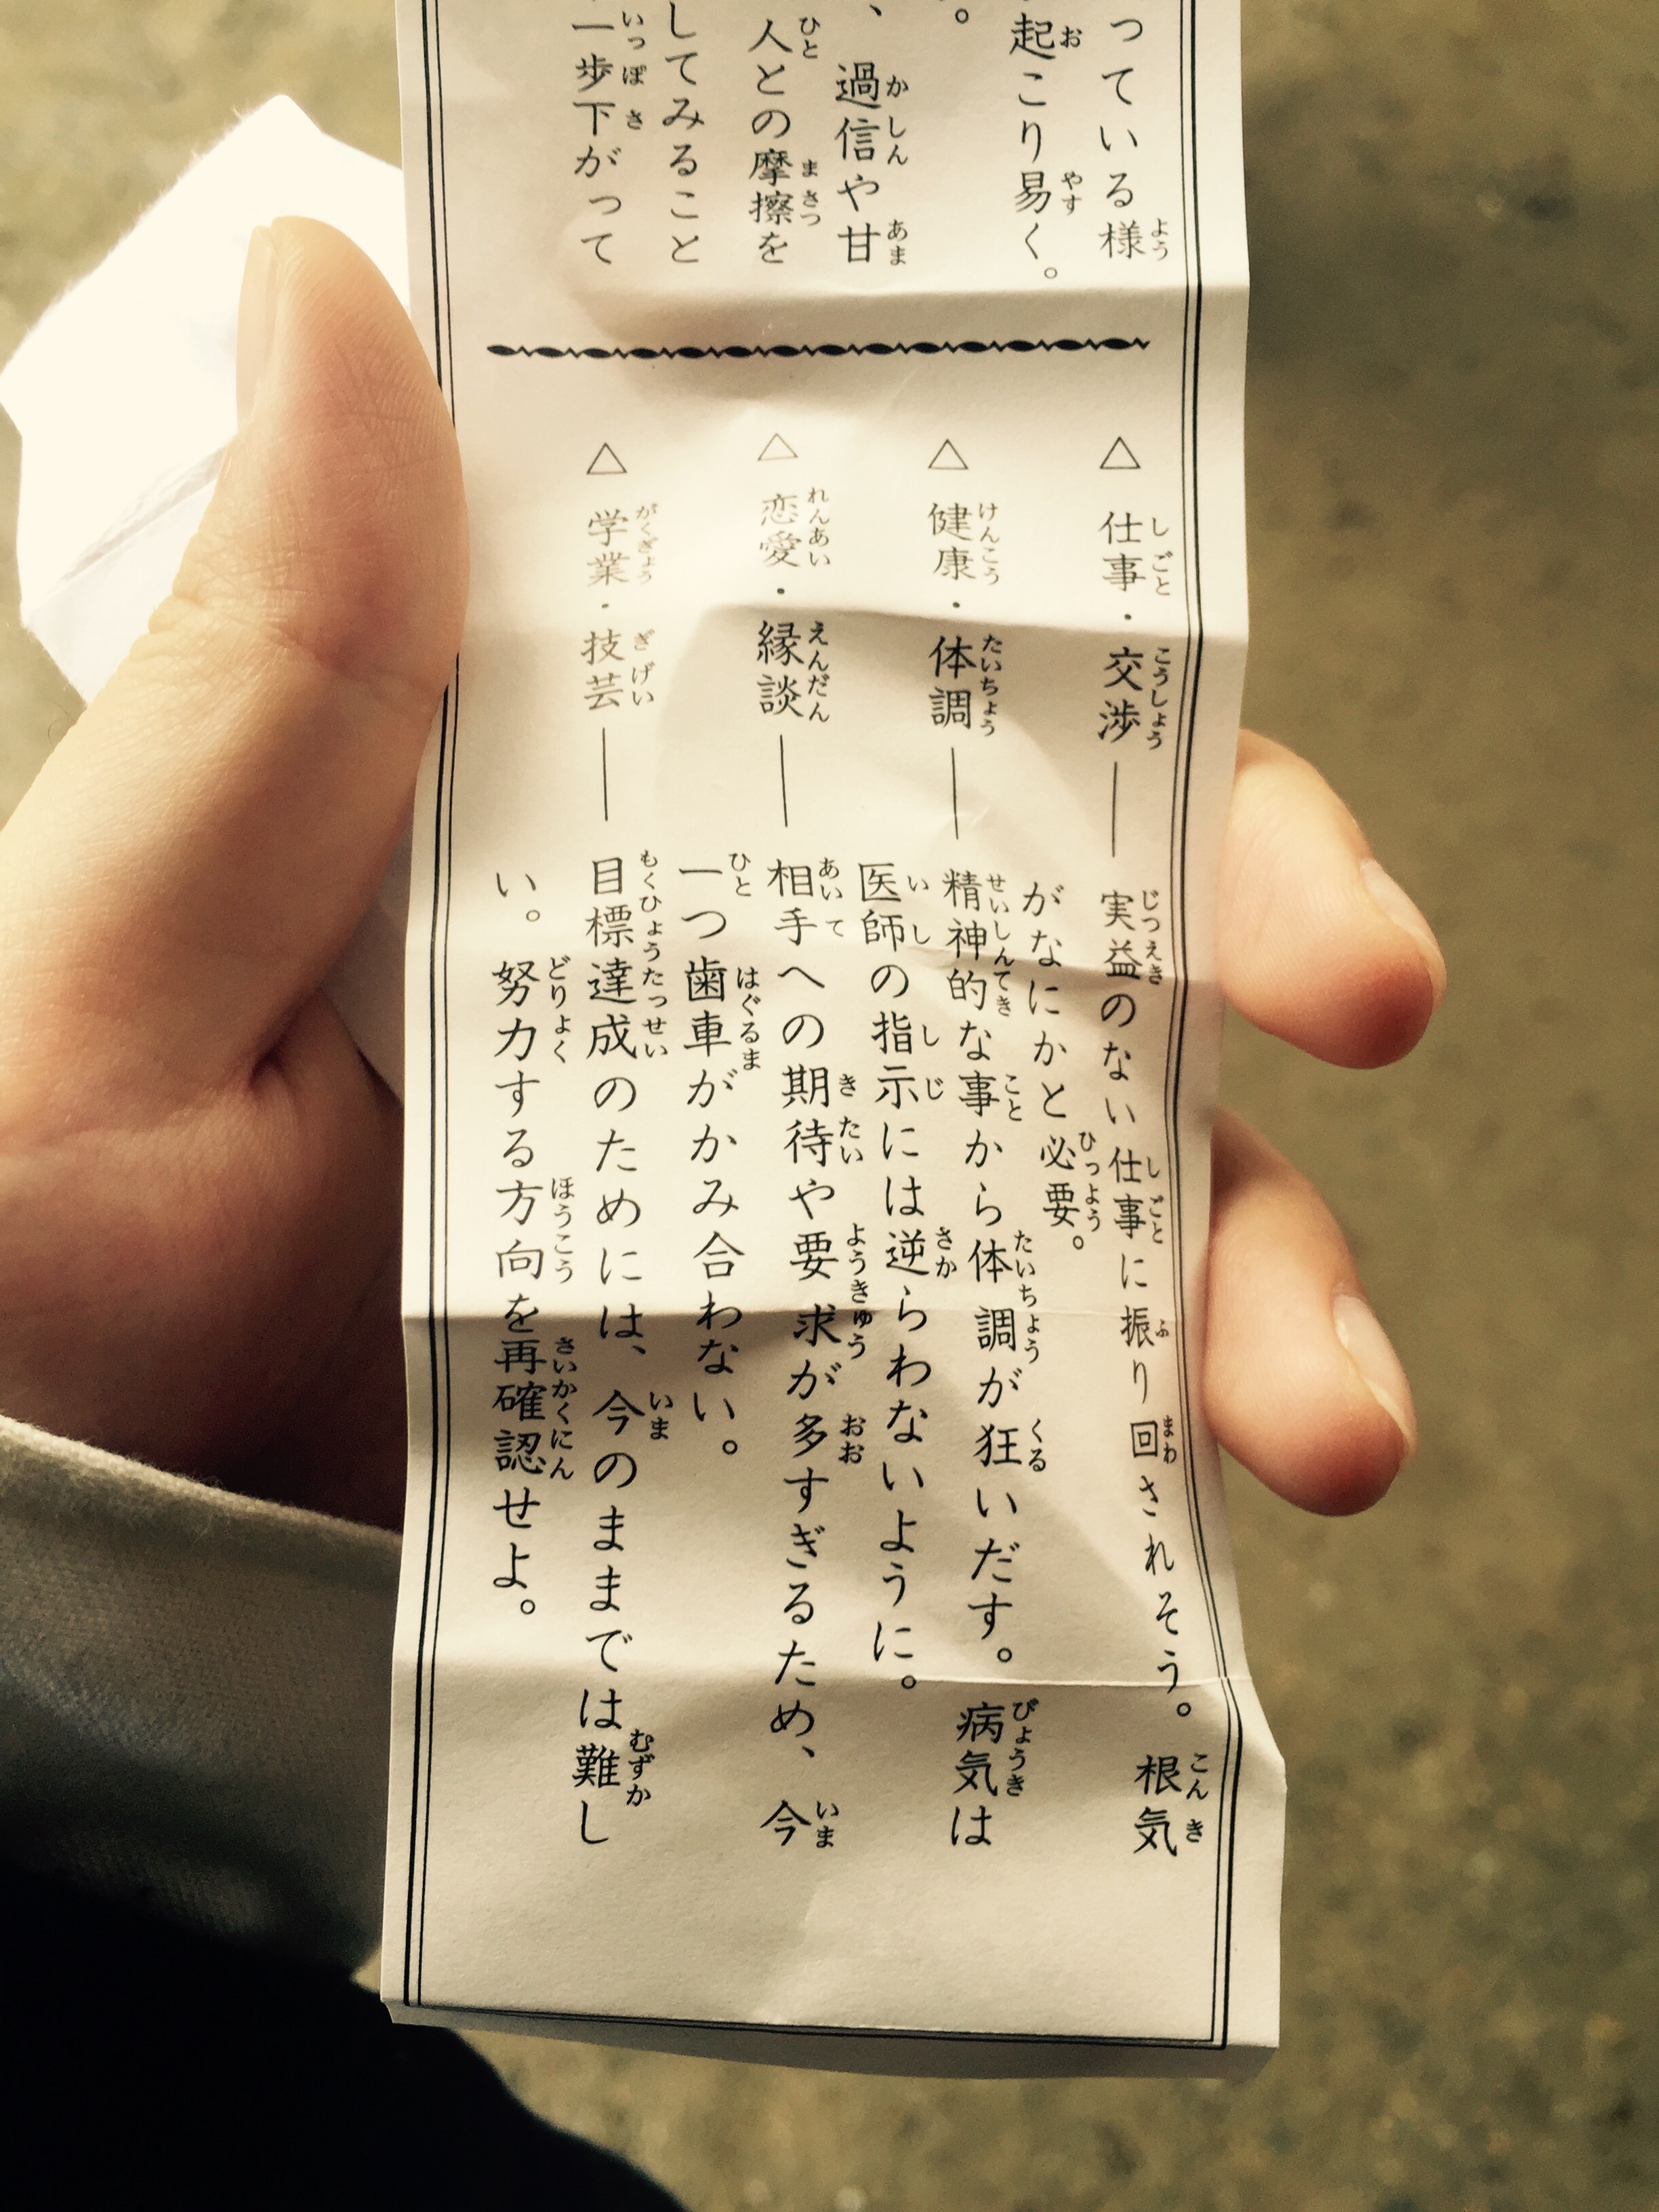 っている様
起こり易く。
。
、過信や甘
人との摩擦を
してみること
一歩下がって
△仕事・交渉——実益のない仕事に振り回されそう。根気
がなにかと必要。
△健康・体調——精神的な事から体調が狂いだす。病気は
医師の指示には逆らわないように。
△恋愛・縁談——相手への期待や要求が多すぎるため、今
一つ歯車がかみ合わない。
△学業・技芸——目標達成のためには、今のままでは難し
い。努力する方向を再確認せよ。